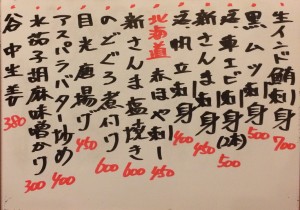 生インド鮪刺身 700
黒ムツ刺身 500
活車エビ刺身(2本) 500
新さんま刺身 450
活帆立刺身 400
北海道 赤ほや刺 450
新さんま塩焼き 600
のどぐろ煮付け 600
目光唐揚げ 450
アスパラバター炒め 400
水茄子胡麻味噌かけ 300
谷中生姜 380